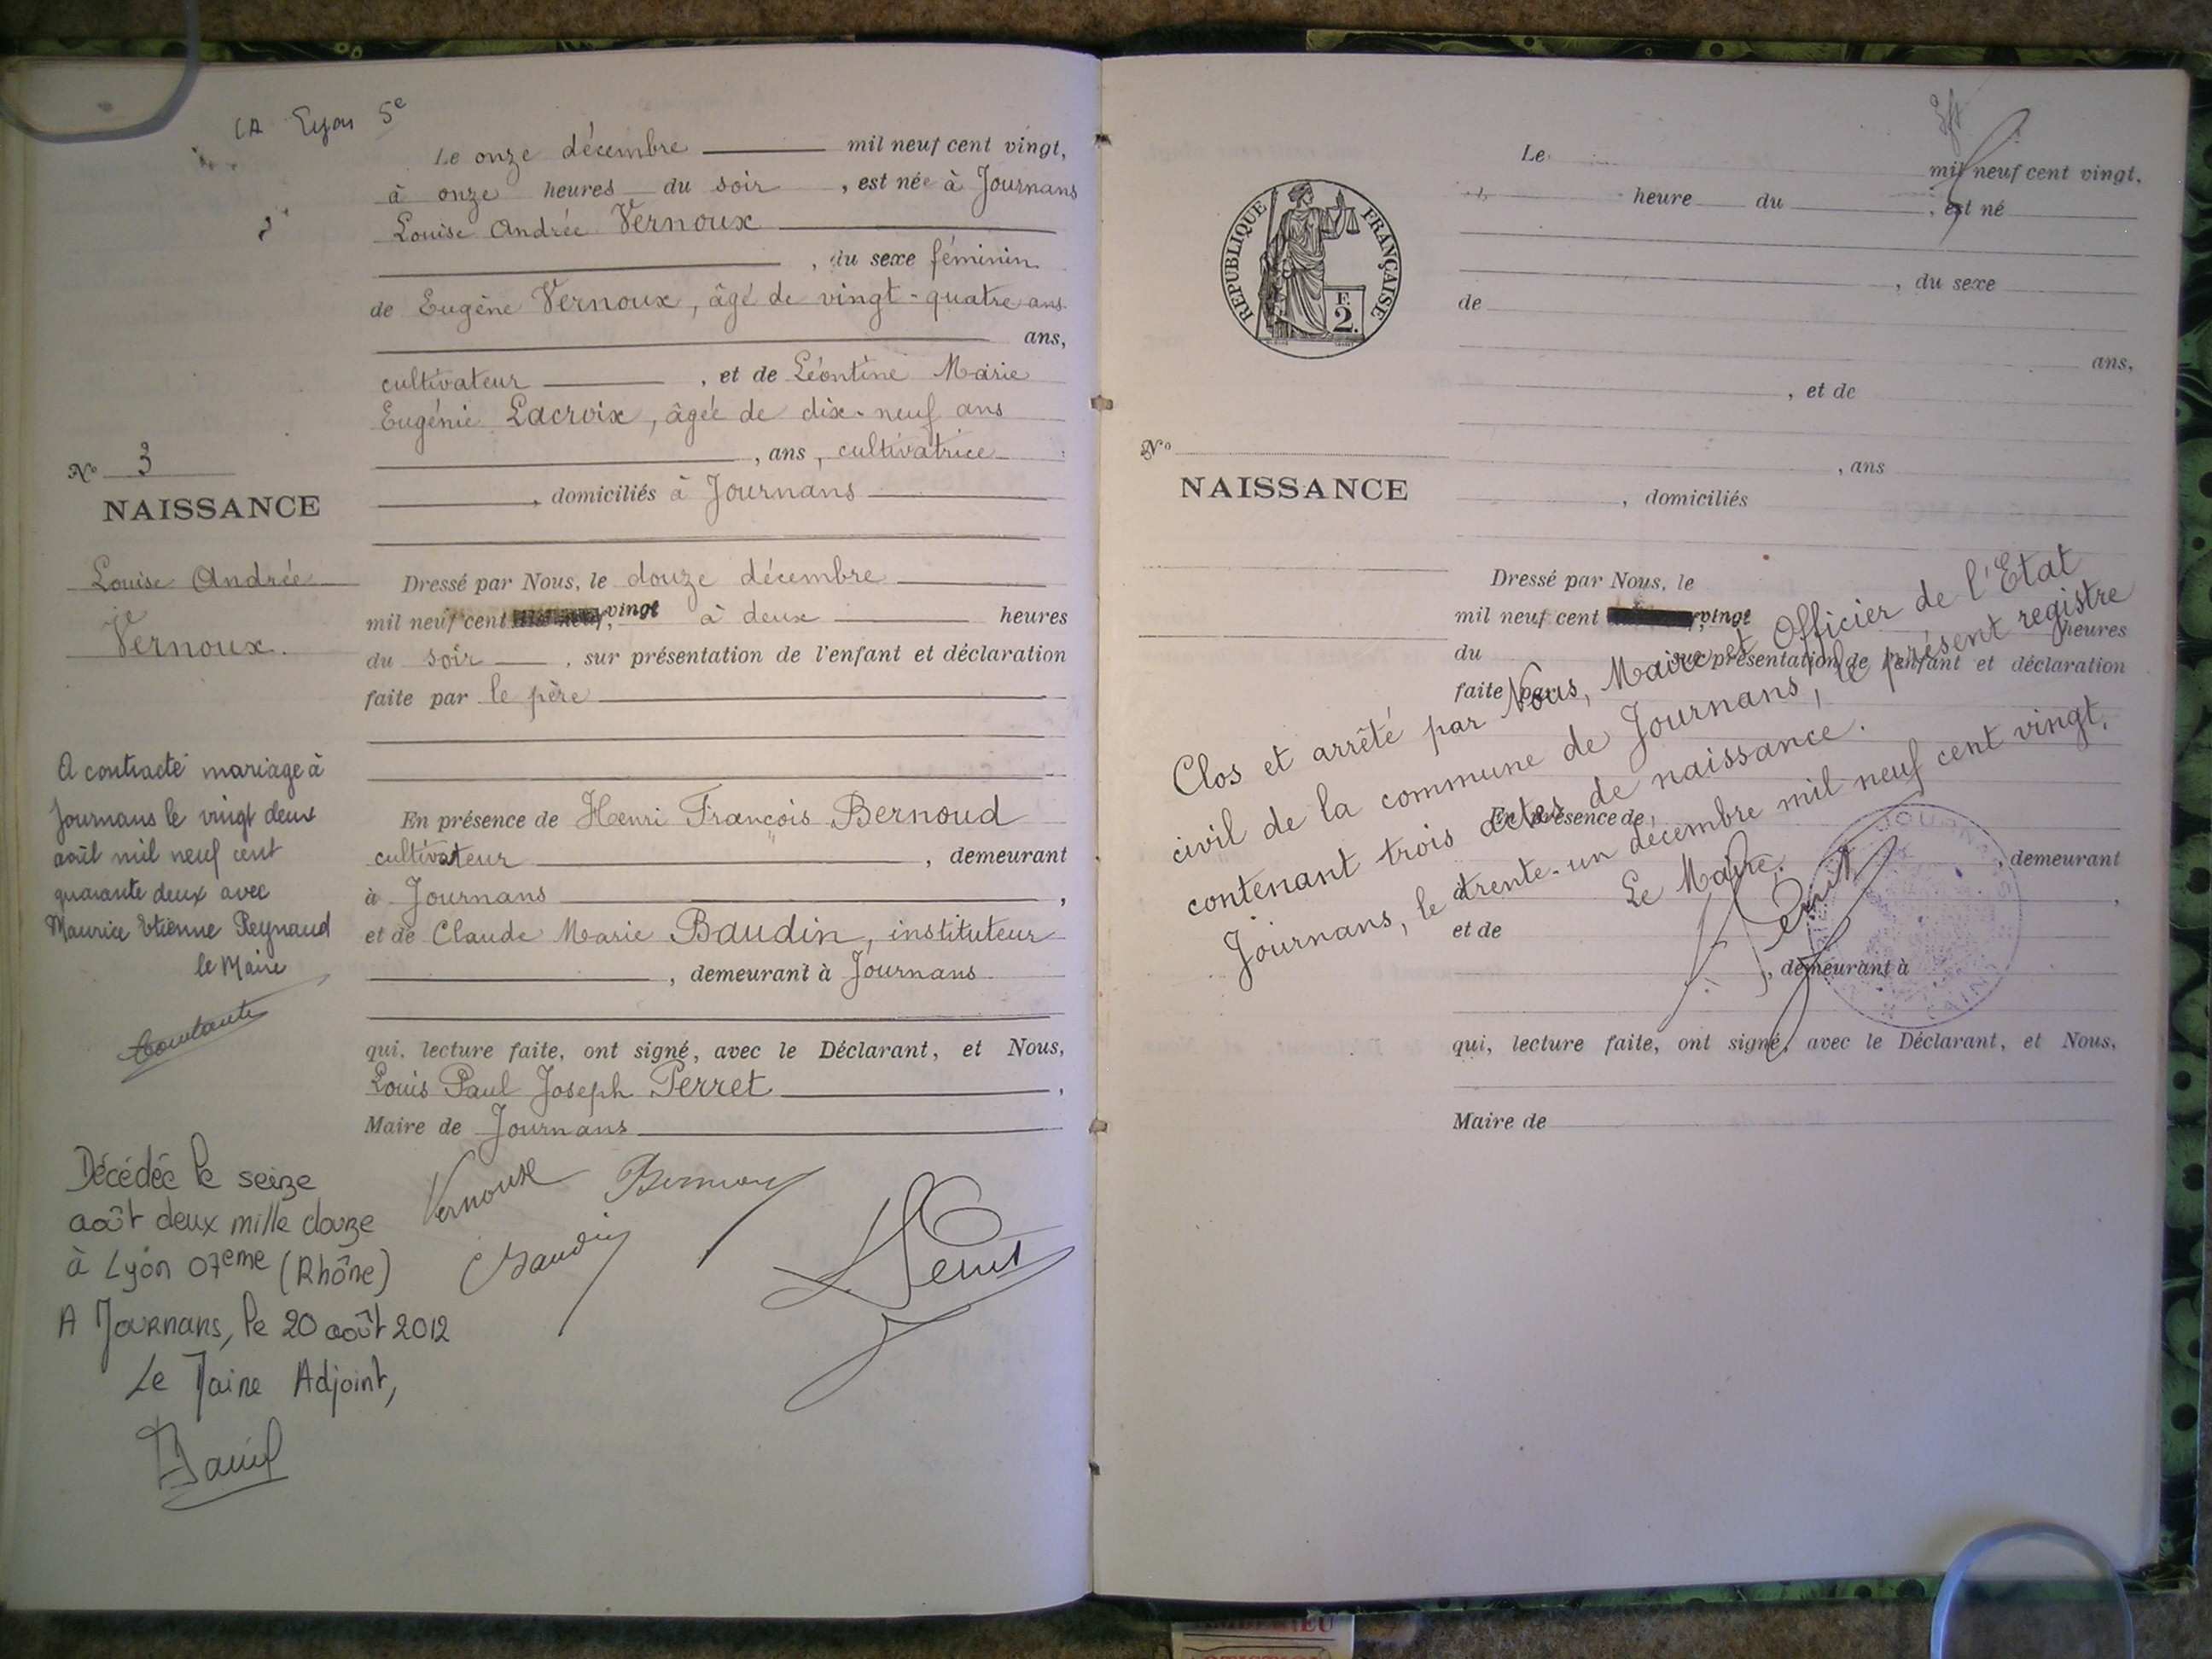 CA Lyon 5e
Le onze décembre mil neuf cent vingt,
à onze heures du soir, est née à Journans
Louise Andrée Vernoux
, du sexe féminin
de Eugène Vernoux, âgé de vingt-quatre ans
ans,
cultivateur, et de Léontine Marie
Eugénie Lacroix, âgée de dix-neuf ans
, ans, cultivatrice
, domiciliés à Journans
No 3
NAISSANCE
Louise Andrée
Vernoux.
Dressé par Nous, le douze décembre
mil neuf cent vingt à deux heures
du soir, sur présentation de l'enfant et déclaration
faite par le père
En présence de Henri François Bernoud
cultivateur, demeurant
à Journans,
et de Claude Marie Baudin, instituteur
, demeurant à Journans
qui, lecture faite, ont signé, avec le Déclarant, et Nous,
Louis Paul Joseph Perret,
Maire de Journans
Vernoux
Baudin
A contracté mariage à
Journans le vingt deux
août mil neuf cent
quarante deux avec
Maurice Etienne Peynaud
le Maire
Décédée le seize
août deux mille douze
à Lyon 07eme (Rhône)
A Journans, le 20 août 2012
Le Maire Adjoint,
REPUBLIQUE FRANÇAISE
F.
2.
Le mil neuf cent vingt,
heure du, est né
, du sexe
de
ans,
, et de
No
NAISSANCE
, ans
, domiciliés
Dressé par Nous, le
mil neuf cent vingt
heures
du sur présentation de l'enfant et déclaration
faite par
En présence de
, demeurant
à,
et de
, demeurant à
qui, lecture faite, ont signé, avec le Déclarant, et Nous,
Maire de
Clos et arrêté par Nous, Maire et Officier de l'Etat
civil de la commune de Journans, le présent registre
contenant trois actes de naissance.
Journans, le trente-un décembre mil neuf cent vingt.
Le Maire,